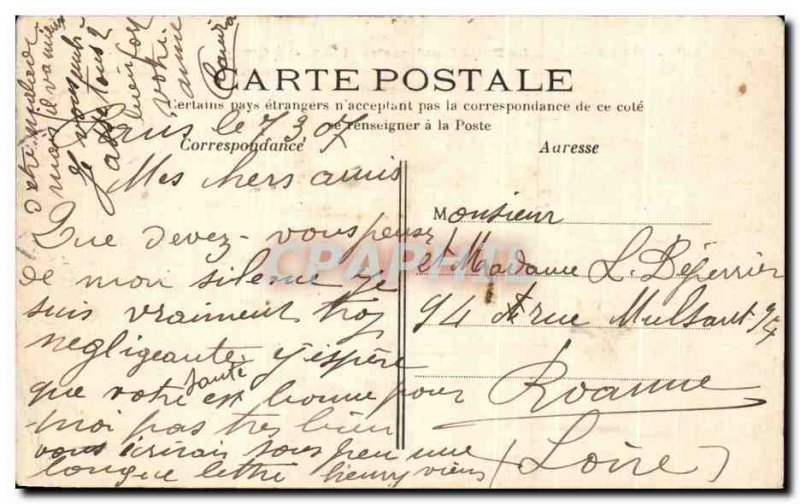 CARTE POSTALE
Certains pays étrangers n'acceptent pas la correspondance de ce coté
se renseigner à la Poste
Correspondance
Adresse
Paris le 7 3 07
Mes chers amis
Que devez-vous penser
de mon silence je
suis vraiment trop
negligeante j'espère
que votre santé est bonne pour
moi pas tres bien
vous écrirais sous peu une
longue lettre henry viens
d'etre malade
mais il va mieux
Je vous embrasse tous 2
bien fort
votre
amie
M onsieur
et Madame L. Déperrier
94 rue Mulsant 94
Roanne
(Loire)
CPARHTL